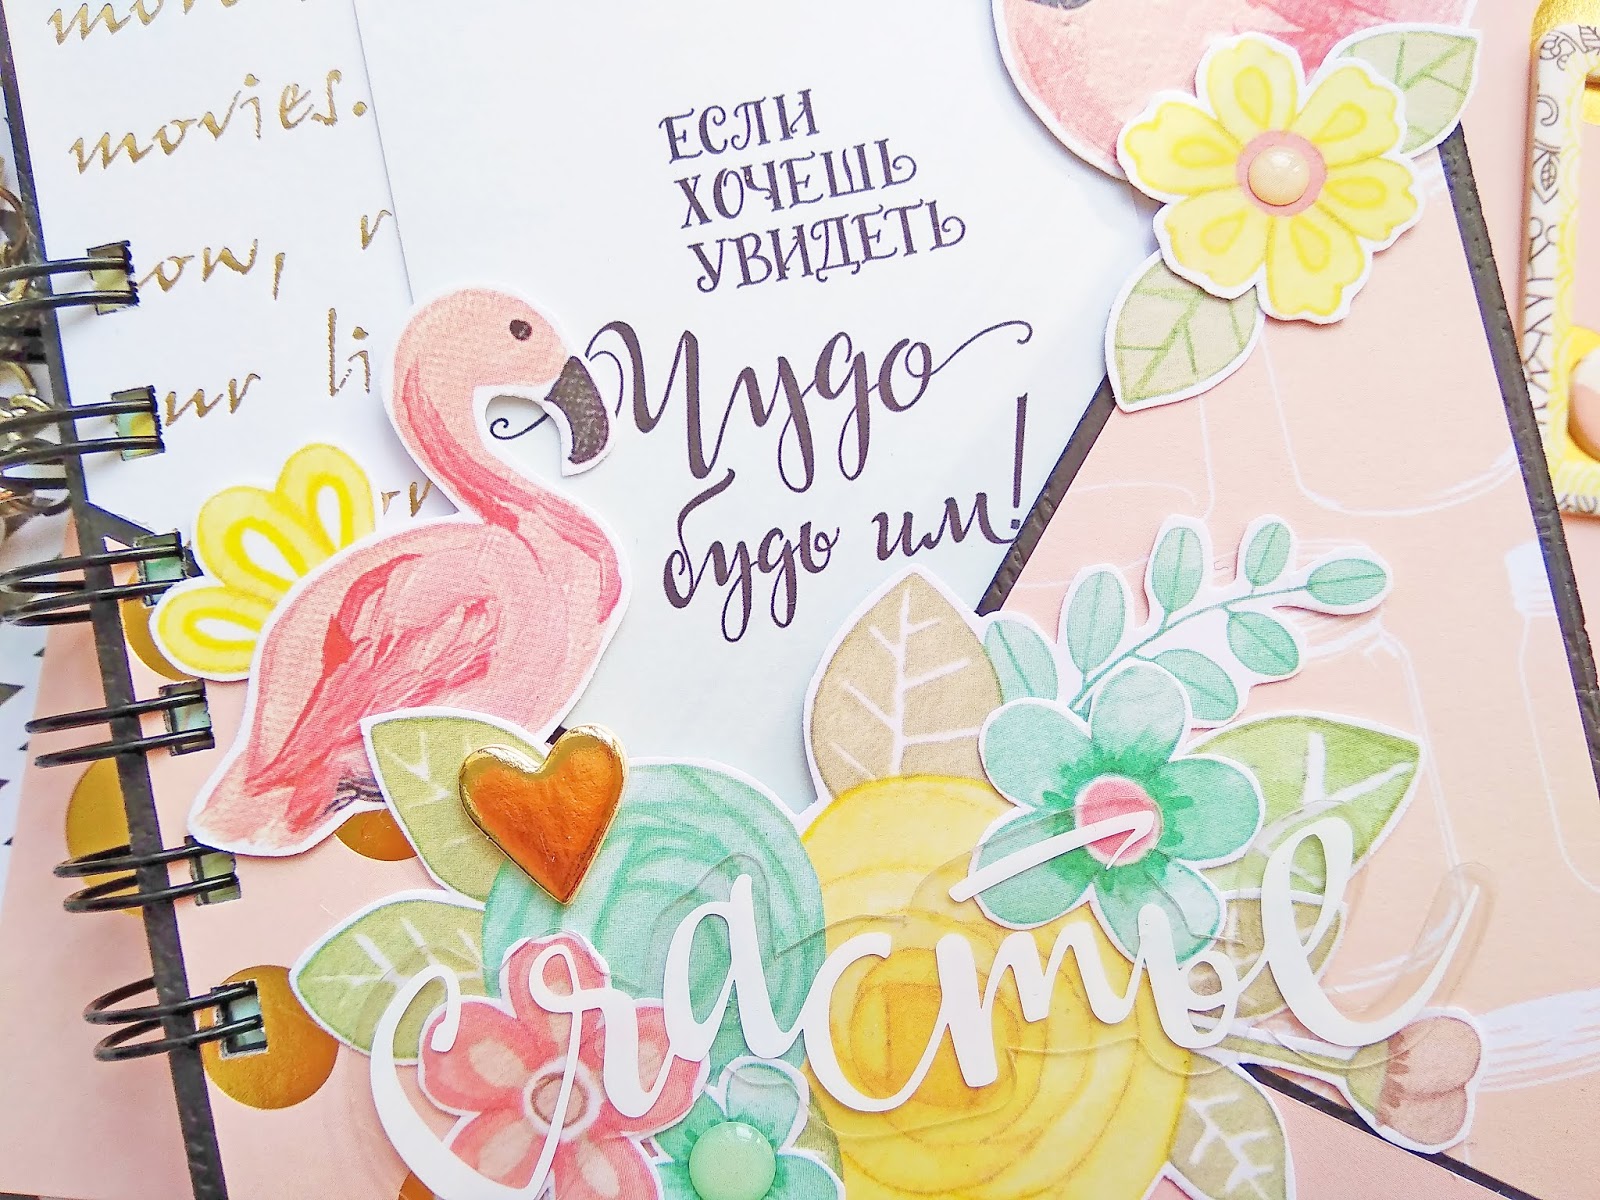 movies.
now,
ЕСЛИ
ХОЧЕШЬ
УВИДЕТЬ
Чудо
будь им!
счастье